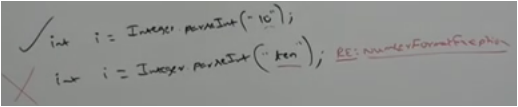 ✓ int i = Integer.parseInt("10");
✗ int i = Integer.parseInt("ten"); RE: NumberFormatException